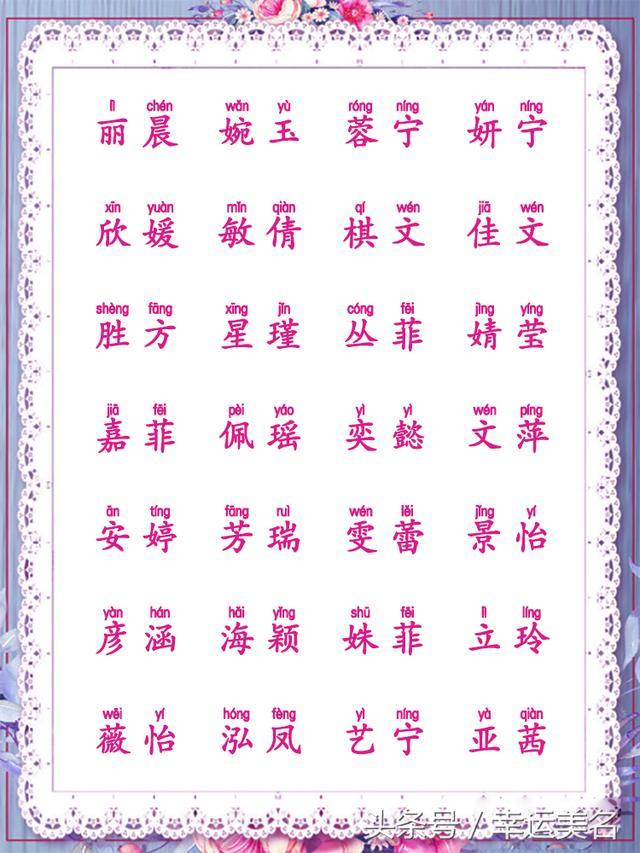 lì chén wǎn yù róng níng yán níng
丽晨 婉玉 蓉宁 妍宁
xīn yuàn mǐn qiàn qí wén jiā wén
欣媛 敏倩 棋文 佳文
shèng fāng xīng jǐn cóng fēi jìng yíng
胜方 星瑾 丛菲 婧莹
jiā fēi pèi yáo yì yì wén píng
嘉菲 佩瑶 奕懿 文萍
ān tíng fāng ruì wén lěi jǐng yí
安婷 芳瑞 雯蕾 景怡
yàn hán hǎi yǐng shū fēi lì líng
彦涵 海颖 姝菲 立玲
wēi yí hóng fèng yì níng yà qiàn
薇怡 泓凤 艺宁 亚茜
头条号 / 幸运美名